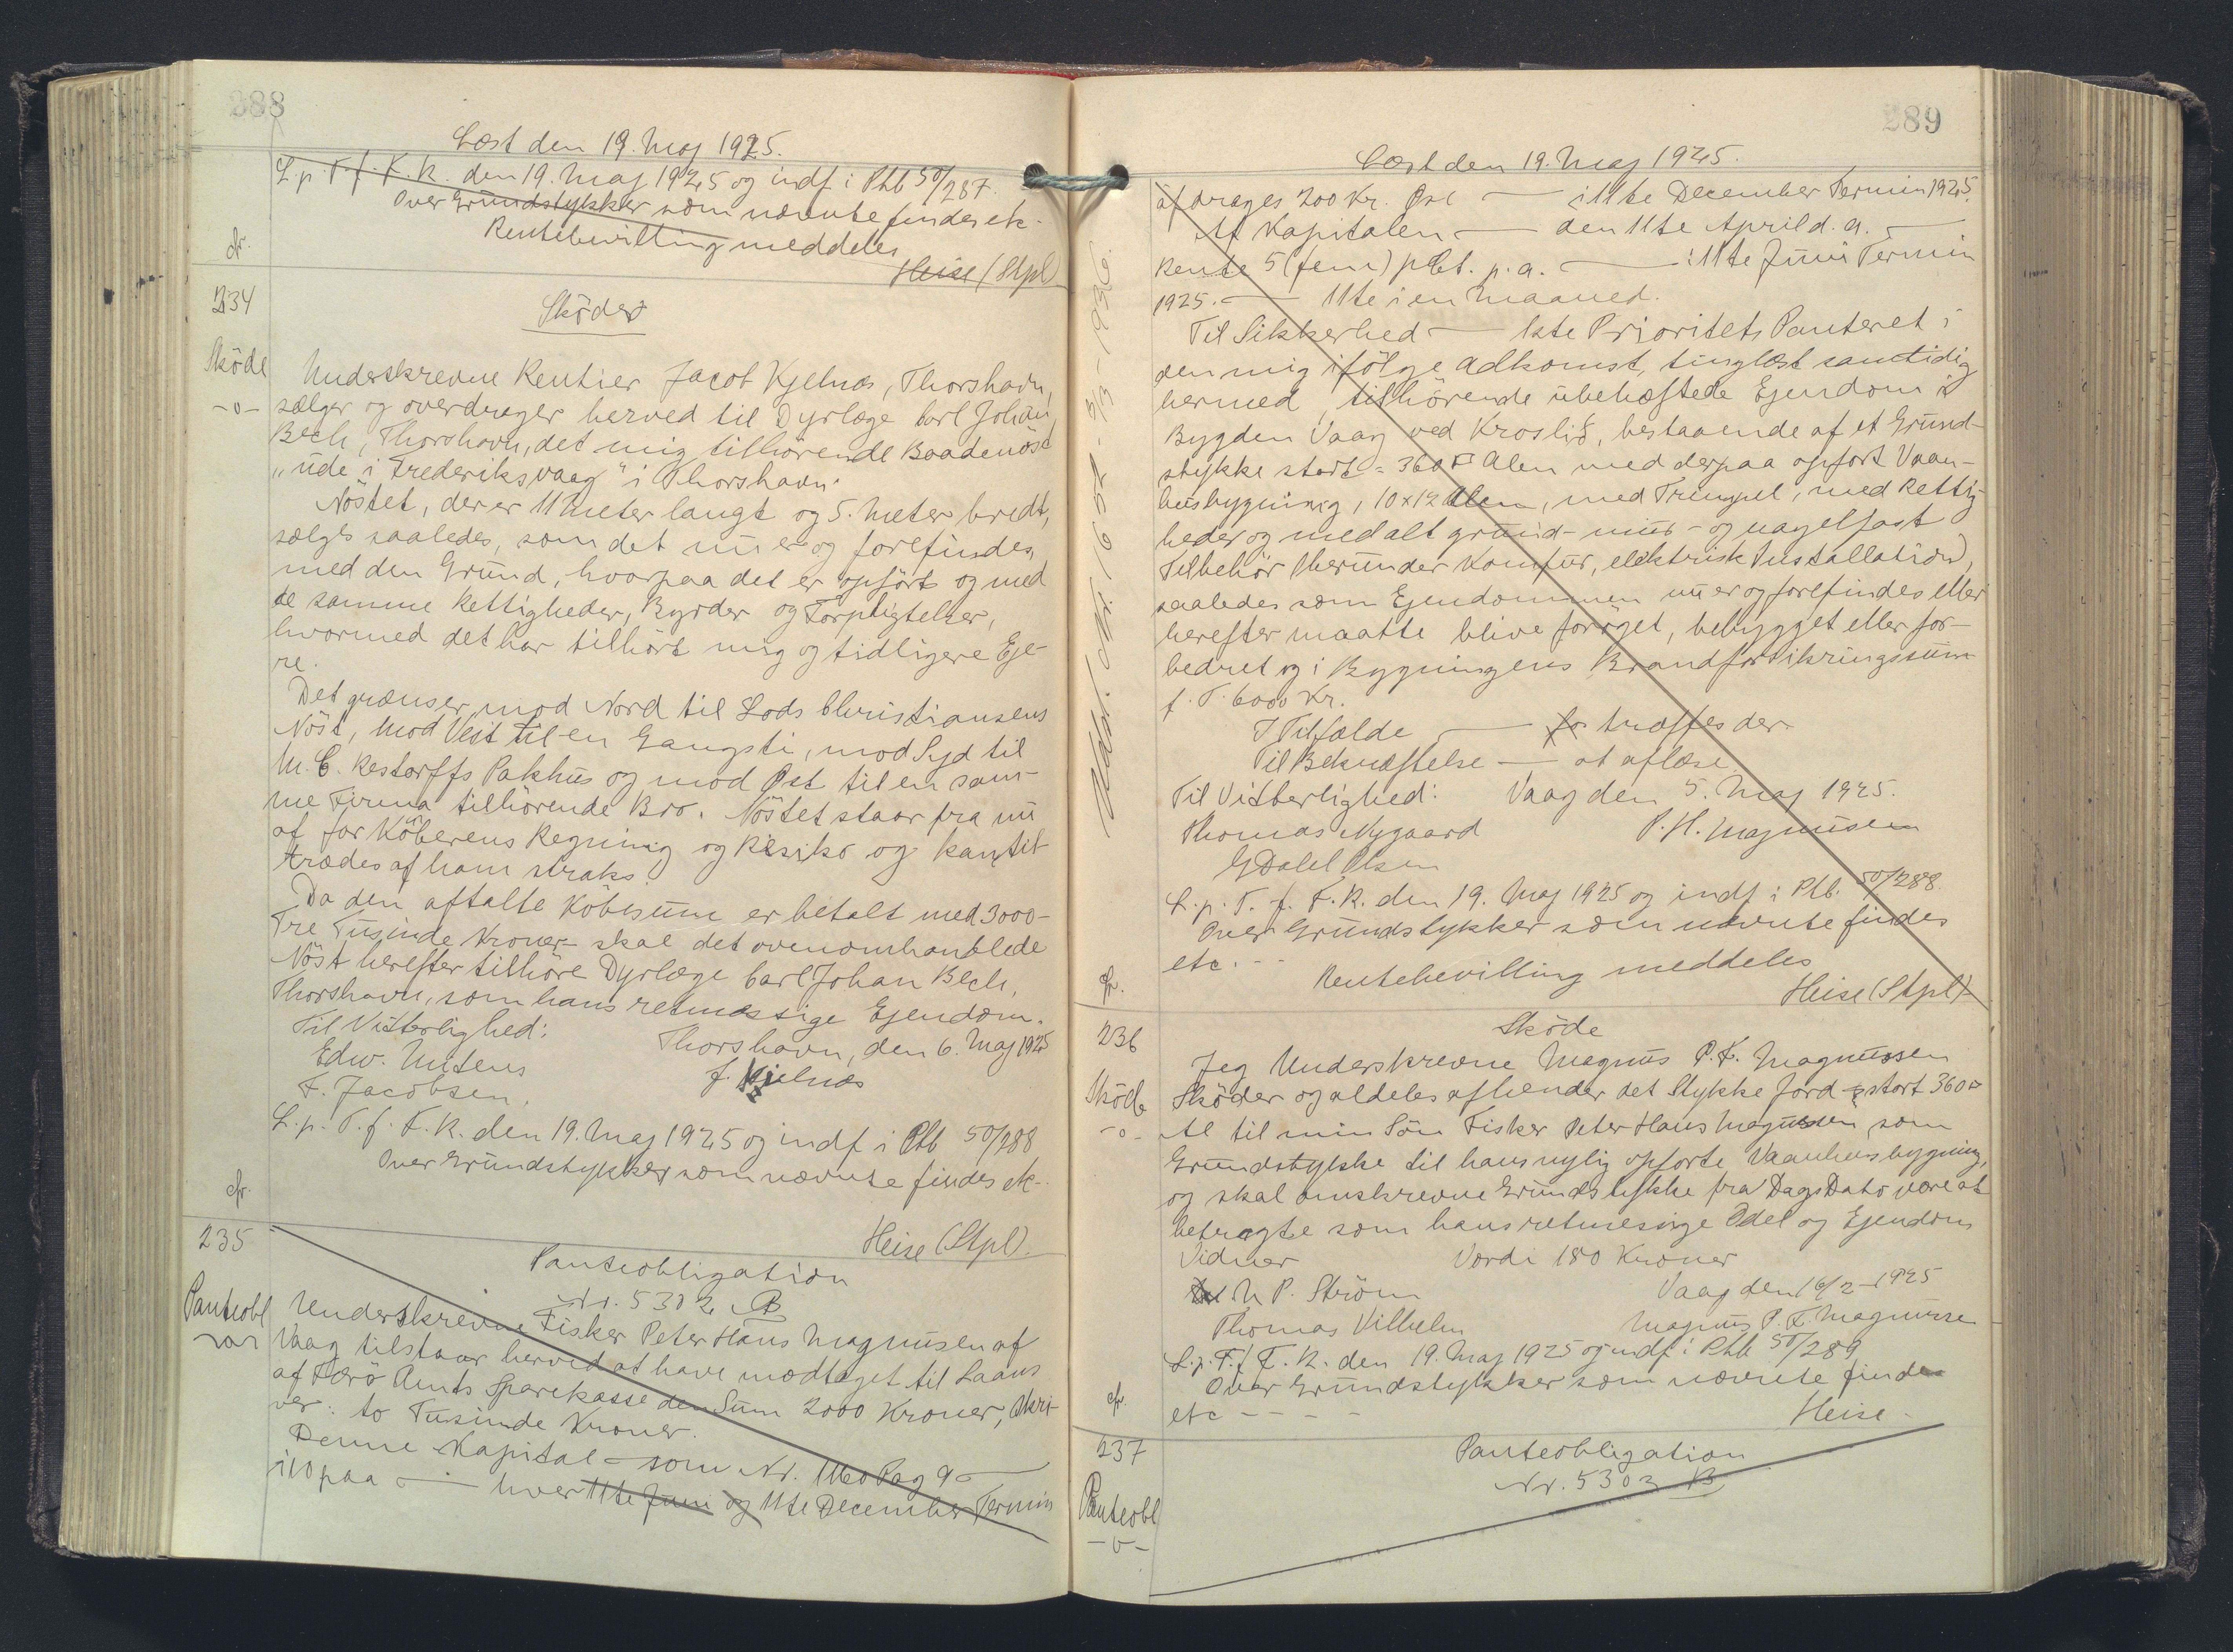 288
Læst den 19. Maj 1925.
L. p. T. f. F. R. den 19. Maj 1925 og indf i Ptb 50/287.
Over Grundstykker som nævnte findes etc.
Rentebevilling meddeles
cfr.
Heise (Stpl)
234
Sköde
Sköde
-o-
Underskrevne Rentier Jacob Kjelnæs, Thorshavn,
sælger og overdrager herved til Dyrlæge Carl Johan
Bech, Thorshavn, det mig tilhörende Baadenöst
"ude i Frederiksvaag" i Thorshavn.
Nöstet, der er 11 Meter langt og 5. Meter bredt,
sælges saaledes, som det nu er og forefindes,
med den Grund, hvorpaa det er opfört og med
de samme Rettigheder, Byrder og Forpligtelser,
hvormed det har tilhört mig og tidligere Eje-
re.
Det grænser mod Nord til Lods Christiansens
Nöst, mod Vest til en Gangsti, mod Syd til
M. C. Restorffs Pakhus og mod Öst til en sam-
me Firma tilhörende Bro. Nöstet staar fra nu
af for Köberens Regning og Risiko og kan til-
trædes af ham straks.
Da den aftalte Köbesum er betalt med 3000-
Tre Tusinde Kroner- skal det ovenomhandlede
Nöst herefter tilhöre Dyrlæge Carl Johan Bech,
Thorshavn, som hans retmæssige Ejendom.
Til Vitterlighed: Thorshavn, den 6. Maj 1925
Edw. Mitens J. Kjelnæs
F. Jacobsen.
L. p. T. f. F. R. den 19. Maj 1925 og indf i Ptb 50/288
Over Grundstykker som nævnte findes etc.
cfr.
Heise (Stpl).
235
Panteobligation
Nr. 5302 B
Panteobl
Underskrevne Fisker Peter Hans Magnusen af
Vaag tilstaar herved at have modtaget til Laans
af Færö Amts Sparekasse den Sum 2000 Kroner, skri-
ver: to Tusinde Kroner.
Denne Kapital - som Nr. 1160 Pag 9 -
i 10 paa - hver 11te Juni og 11te December Termin
289
Læst den 19. Maj 1925.
afdrages 200 Kr. Öre - i 11te December Termin 1925.
Af Kapitalen - den 11te April d. a. -
Rente 5 (fem) pCt. p. a. - i 11te Juni Termin
1925. - 11te i en Maaned.
Til Sikkerhed - 1ste Prioritets Panteret i
den mig ifölge Adkomst, tinglæst samtidig
hermed, tilhörende ubehæftede Ejendom i
Bygden Vaag ved Kroslid, bestaaende af et Grund-
stykke stort = 360 □ Alen med derpaa opfört Vaan-
husbygning, 10x12 Alen, med Trempel, med Rettig-
heder og med alt grund- mur- og nagelfast
Tilbehör (herunder Komfur, elektrisk Installation),
saaledes som Ejendommen nu er og forefindes eller
herefter maatte blive foröget, bebygget eller for-
bedret og i Bygningens Brandforsikringssum
f. T. 6000 Kr.
I Tilfælde - træffes der.
Til Bekræftelse - at aflæse
Til Vitterlighed: Vaag den 5. Maj 1925.
Thomas Nygaard P. H. Magnusen
L. p. T. f. F. R. den 19. Maj 1925 og indf i Ptb. 50/288.
Over Grundstykker som nævnte findes
etc. - -
Rentebevilling meddeles
cfr.
Heise (Stpl)
236
Sköde
Sköde
-o-
Jeg Underskrevne Magnus P. F. Magnussen
Sköder og aldeles afhender det Stykke Jord stort 360 □
Al til min Sön Fisker Peter Hans Magnusen, som
Grundstykke til hans nylig opförte Vaanhusbygning,
og skal omskrevne Grundstykke fra Dags Dato være at
betragte som hans retmæsige Odel og Ejendom
Vidner Værdi 180 Kroner
M P. Ström Vaag den 16/2-1925
Thomas Vilhelm Magnus P. F. Magnussen
L. p. T. f F. R. den 19. Maj 1925 og indf. i Ptb 50/289
Over Grundstykker som nævnte findes
cfr.
etc - - - - Heise.
237
Panteobligation
Nr. 5303 B
Panteobl
-o-